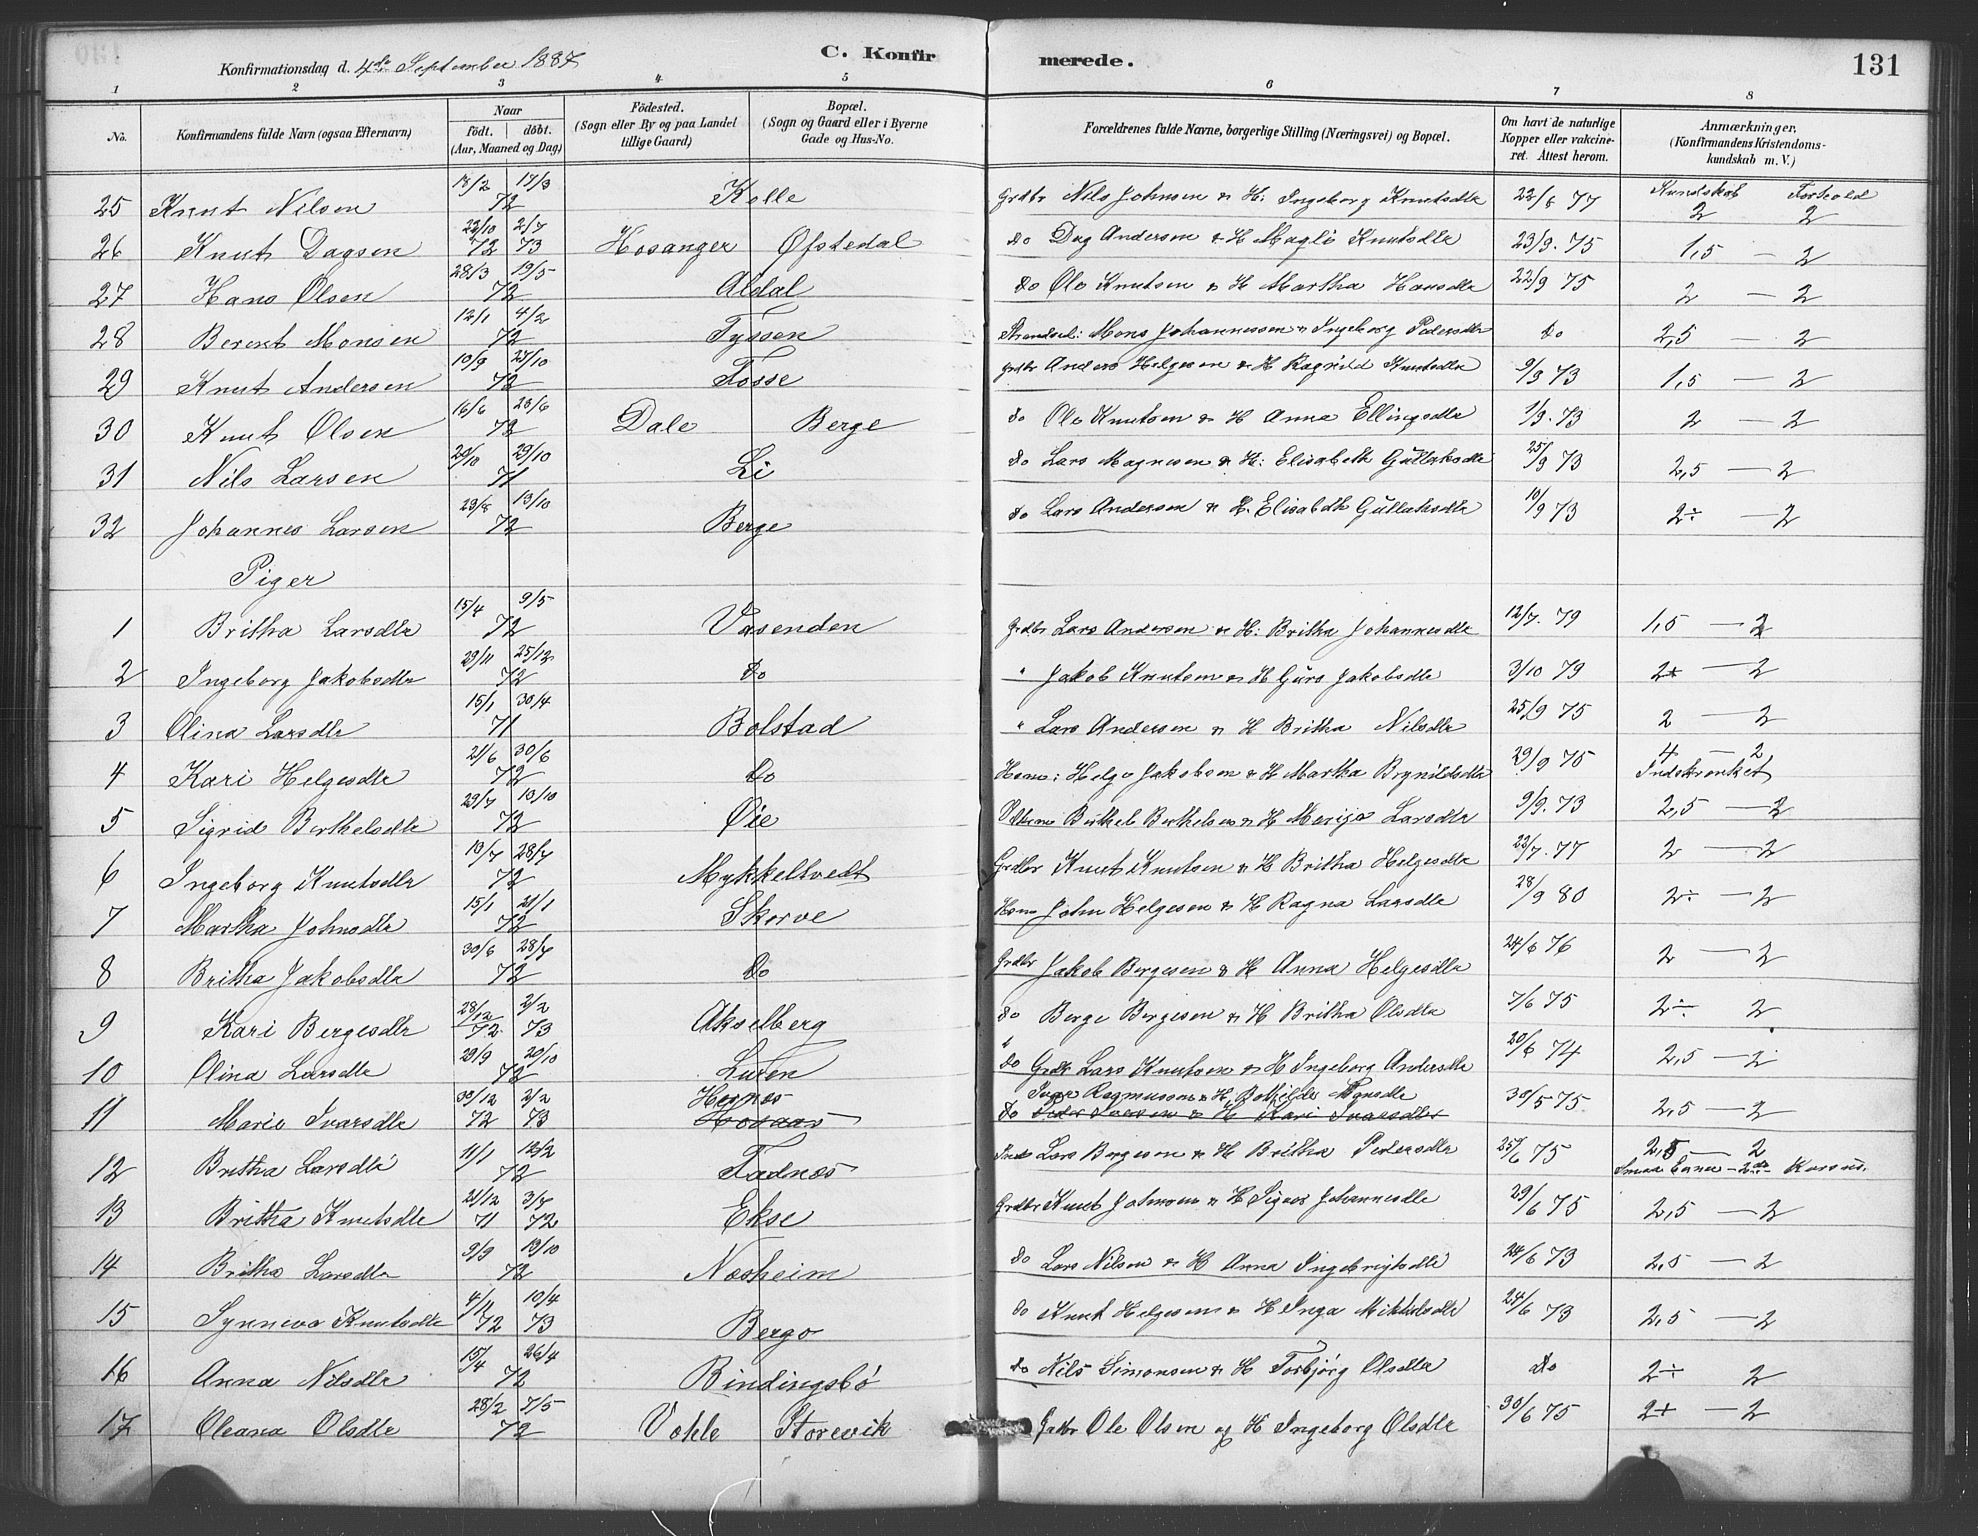 C. Konfirmerede. 131
Konfirmationsdag d. 4de September 1887
1 2 3 4 5 6 7 8
No. Konfirmandens fulde Navn (ogsaa Efternavn) Naar födt. döbt. (Aar, Maaned og Dag) Födested. (Sogn eller By og paa Landet tillige Gaard) Bopæl. (Sogn og Gaard eller i Byerne Gade og Hus-No. Forældrenes fulde Navne, borgerlige Stilling (Næringsvei) og Bopæl. Om havt de naturlige Kopper eller vakcineret. Attest herom. Anmærkninger, (Konfirmandens Kristendomskundskab m. V.)
Kundskab Forhold
25 Knut Nilsen 18/2 17/3 72 Kolle Grdbr Nils Johnsen & H. Ingeborg Knutsdtr 22/8 77 2 2
26 Knut Dagsen 22/10 72 2/7 73 Hosanger Øfstedal do Dag Andersen & H Magli Knutsdtr 23/9. 75 1,5 — 2
27 Hans Olsen 28/3 19/5 72 Aldal do Ole Knutsen & H Martha Hansdtr 22/9 75 2 — 2
28 Berent Monsen 12/1 4/2 72 Tyssen Strandsid: Mons Johannessen & Ingeborg Pedersdtr do 2,5 — 2
29 Knut Andersen 10/9 27/10 72 Fosse grdbr Anders Helgesen & H Ragnild Knutsdtr 9/9 73 1,5 — 2
30 Knut Olsen 16/6 23/6 72 Dale Berge do Ole Knutsen & H Anna Ellingsdtr 1/9. 73 2 — 2
31 Nils Larsen 20/10 29/10 71 Li do Lars Magnesen & H: Elisabeth Gullaksdtr 25/9 73 2,5 — 2
32 Johannes Larsen 29/8 13/10 72 Berge do Lars Andersen & H. Elisabeth Gullaksdtr 10/9 73 2÷ — 2
Piger
1 Britha Larsdtr 15/4 9/5 72 Vasenden Grdbr Lars Andersen & H: Britha Johannesdtr 12/7. 79 1,5 — 2
2 Ingeborg Jakobsdtr 29/11 25/12 72 do " Jakob Knutsen & H Guro Jakobsdtr 3/10 79 2+ — 2
3 Olina Larsdtr 15/1 30/4 71 Bolstad " Lars Andersen & H Britha Nilsdtr 25/9 75 2 — 2
4 Kari Helgesdtr 21/6 30/6 72 do Huusm: Helge Jakobsen & H Martha Brynildsdtr 29/9 75 4 — 2 Indskrænket
5 Sigrid Berthelsdtr 29/7 13/10 72 Øie Berthel Berthelsen & H Merija Larsdtr 9/9. 73 2,5 — 2
6 Ingeborg Knutsdtr 10/7 28/7 72 Mykkeltvedt Grdbr Knut Knutsen & H Britha Helgesdtr 22/7. 77 2 — 2
7 Martha Johnsdtr 15/1 21/1 72 Skorve Hsm John Helgesen & H Ragna Larsdtr 28/9 80 2÷ — 2
8 Britha Jakobsdtr 30/6 28/7 72 do Grdbr Jakob Bergesen & H Anna Helgesdtr 24/6 76 2 — 2
9 Kari Bergesdtr 28/12 72 2/2 73 Akselberg do Berge Bergesen & H Britha Olsdtr 7/6 75 2÷ 2
10 Olina Larsdtr 29/9 20/10 72 Luten do Grdb Lars Knutsen & H Ingeborg Andersdtr 20/6 74 2,5 — 2
11 Marie Ivarsdtr 30/12 72 2/2 73 Hernæs Ivar Rasmussen & H. Bothilde Monsdtr do 30/5 75 2,5 — 2
12 Britha Larsdtr 11/1 12/2 72 Fadnæs Inds Lars Bergesen & H Britha Pedersdtr 25/6 75 2,5 — 2
13 Britha Knutsdtr 21/12 71 3/7 72 Ekse Grdbr Knut Johnsen & H Signe Johannesdtr 29/6 75 2,5 — 2
14 Britha Larsdtr 9/9 13/10 72 Næsheim do Lars Nilsen & H Anna Ingebrigtsdtr 24/6 73 2,5 — 2
15 Synneva Knutsdtr 4/11 72 10/4 73 Berge do Knut Helgesen & H Inga Mikkelsdtr 24/6 73 2,5 — 2
16 Anna Nilsdtr 15/4 26/4 72 Bindingsbö do Nils Simonsen & H Torbjörg Olsdtr do 2÷ 2
17 Oleana Olsdtr 28/2 7/5 72 Vohle Storevik Grdbr Ole Olsen og H Ingeborg Olsdtr 30/6 75 2+ — 2